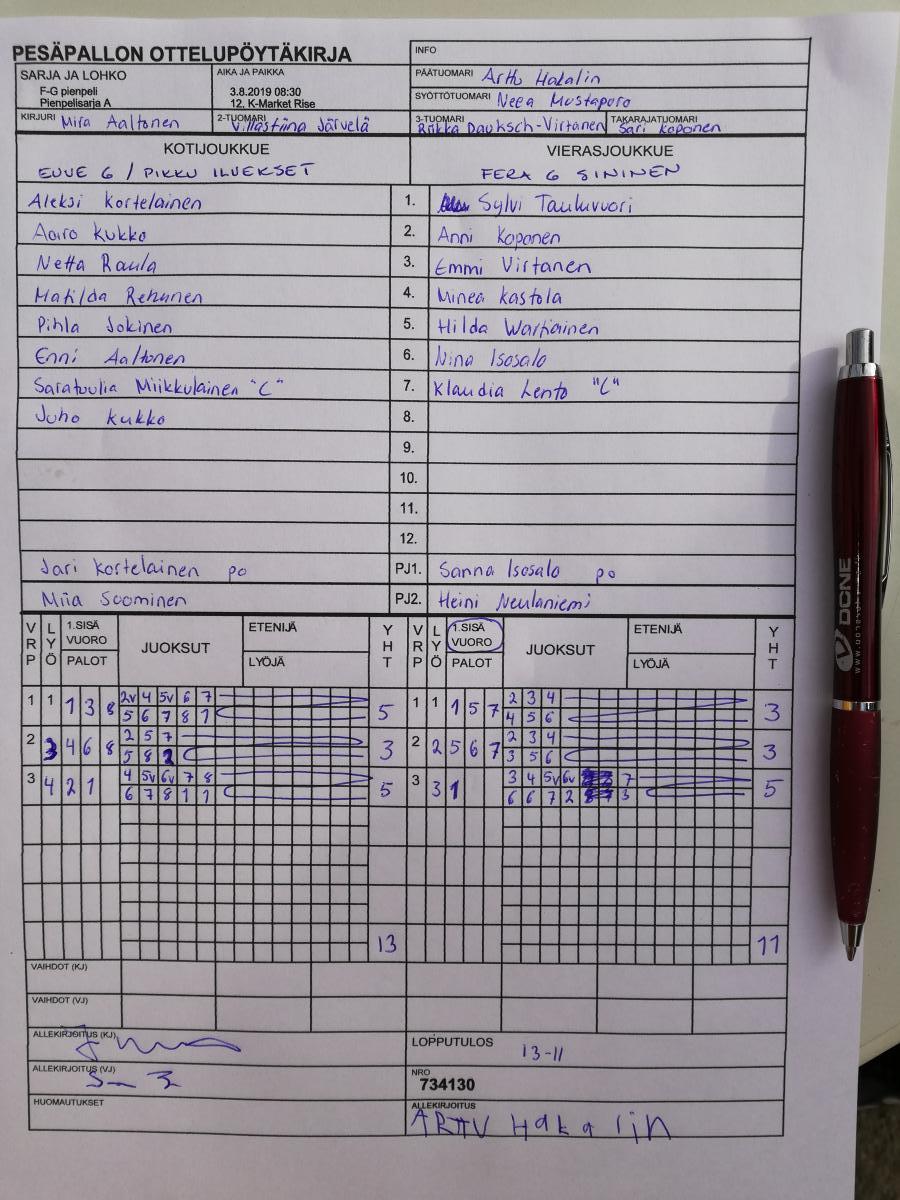 PESÄPALLON OTTELUPÖYTÄKIRJA
INFO
SARJA JA LOHKO
F-G pienpeli
Pienpelisarja A
AIKA JA PAIKKA
3.8.2019 08:30
12. K-Market Rise
PÄÄTUOMARI Arttu Hakalin
SYÖTTÖTUOMARI Neea Mustaporo
KIRJURI Mira Aaltonen
2-TUOMARI Villastiina Järvelä
3-TUOMARI Riikka Dauksch-Virtanen
TAKARAJATUOMARI Sari Koponen
KOTIJOUKKUE
EUVE G / PIKKU ILVEKSET
VIERASJOUKKUE
FERA G SININEN
Aleksi Kortelainen 1. Sylvi Tauluvuori
Aaro Kukko 2. Anni Koponen
Netta Raula 3. Emmi Virtanen
Matilda Rehunen 4. Minea Kastola
Pihla Jokinen 5. Hilda Wartiainen
Enni Aaltonen 6. Nina Isosalo
Saratuulia Miikkulainen "C" 7. Klaudia Lento "C"
Juho Kukko 8.
9.
10.
11.
12.
Jari Kortelainen po PJ1. Sanna Isosalo po
Miia Suominen PJ2. Heini Neulaniemi
VRP LYÖ 1.SISÄ VUORO PALOT JUOKSUT ETENIJÄ LYÖJÄ YHT VRP LYÖ 1.SISÄ VUORO PALOT JUOKSUT ETENIJÄ LYÖJÄ YHT
1 1 1 3 8 2v 4 5v 6 7 5 1 1 1 5 7 2 3 4 3
5 6 7 8 1 4 5 6
2 3 4 6 8 2 5 7 3 2 2 5 6 7 2 3 4 3
5 8 2 3 5 6
3 4 2 1 4 5v 6v 7 8 5 3 3 1 3 4 5v 6v 7 5
6 7 8 1 1 6 6 7 2 3
13 11
VAIHDOT (KJ)
VAIHDOT (VJ)
ALLEKIRJOITUS (KJ)
LOPPUTULOS 13-11
ALLEKIRJOITUS (VJ)
NRO
734130
HUOMAUTUKSET
ALLEKIRJOITUS
ARttU Hakalin
DCNE